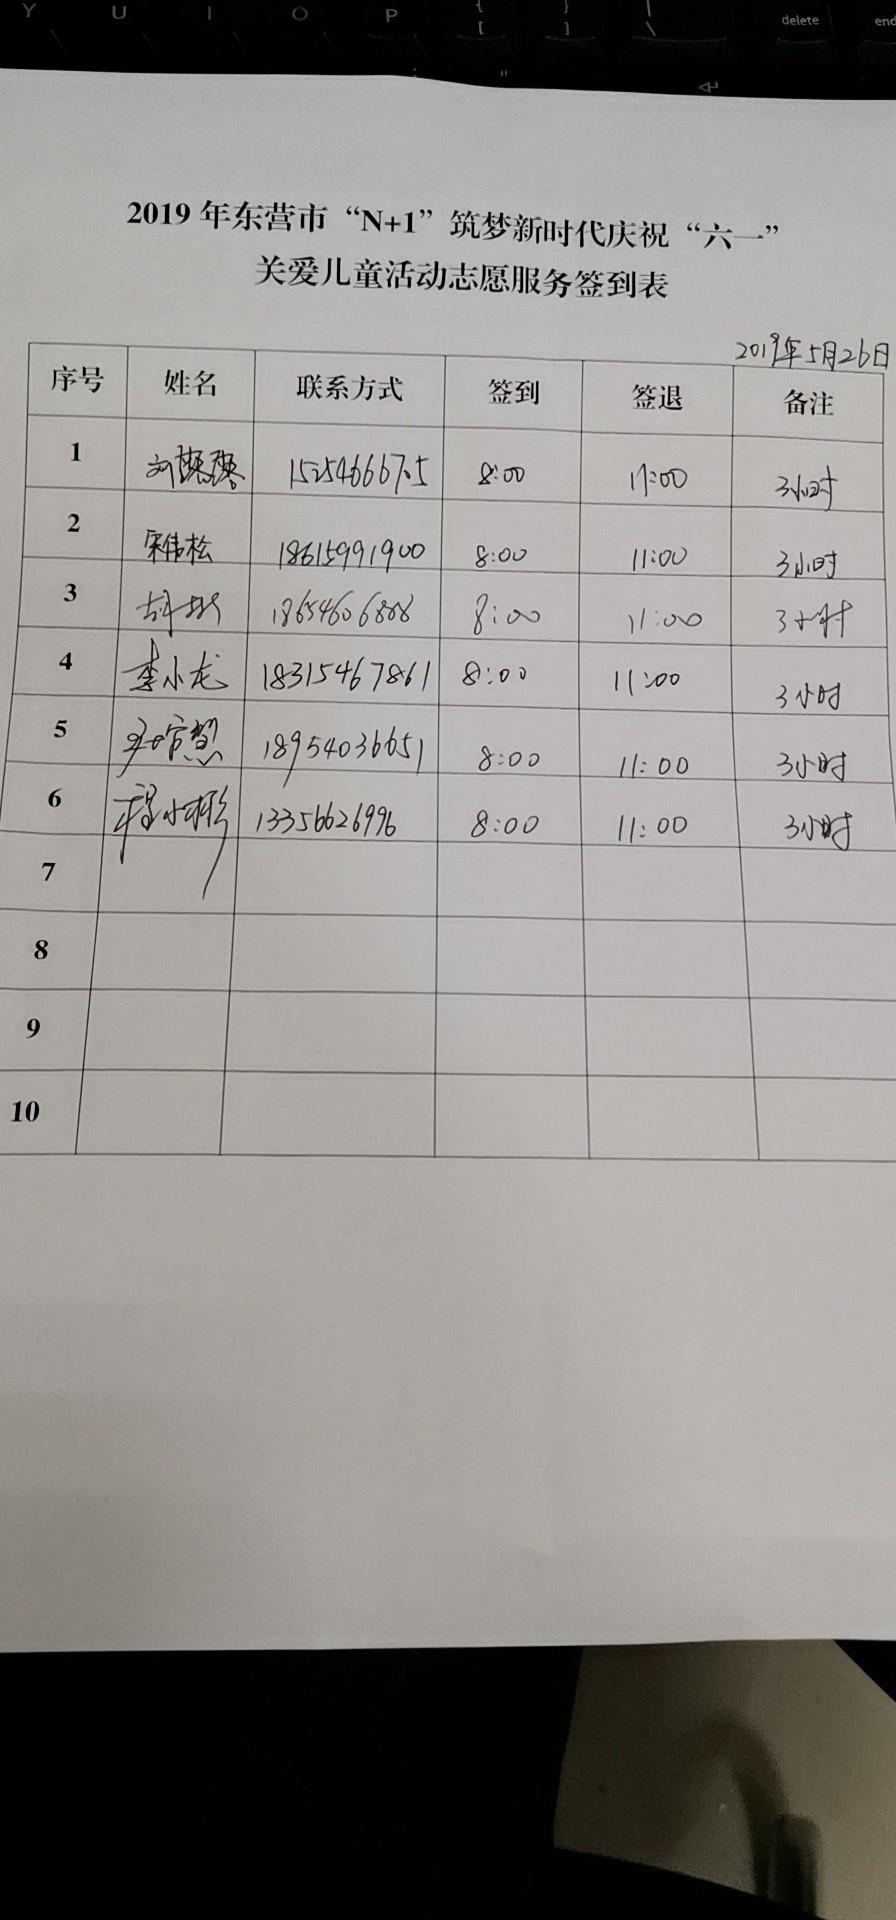 Y U I O P { [ } ] | \ delete end
: " ↵
2019 年东营市“N+1”筑梦新时代庆祝“六一”
关爱儿童活动志愿服务签到表
2019年5月26日
序号 姓名 联系方式 签到 签退 备注
1 8:00 11:00 3小时
2 宋伟松 18615991900 8:00 11:00 3小时
3 18654606888 8:00 11:00 3小时
4 李小龙 18315467861 8:00 11:00 3小时
5 18954036651 8:00 11:00 3小时
6 程小彬 13356626996 8:00 11:00 3小时
7
8
9
10